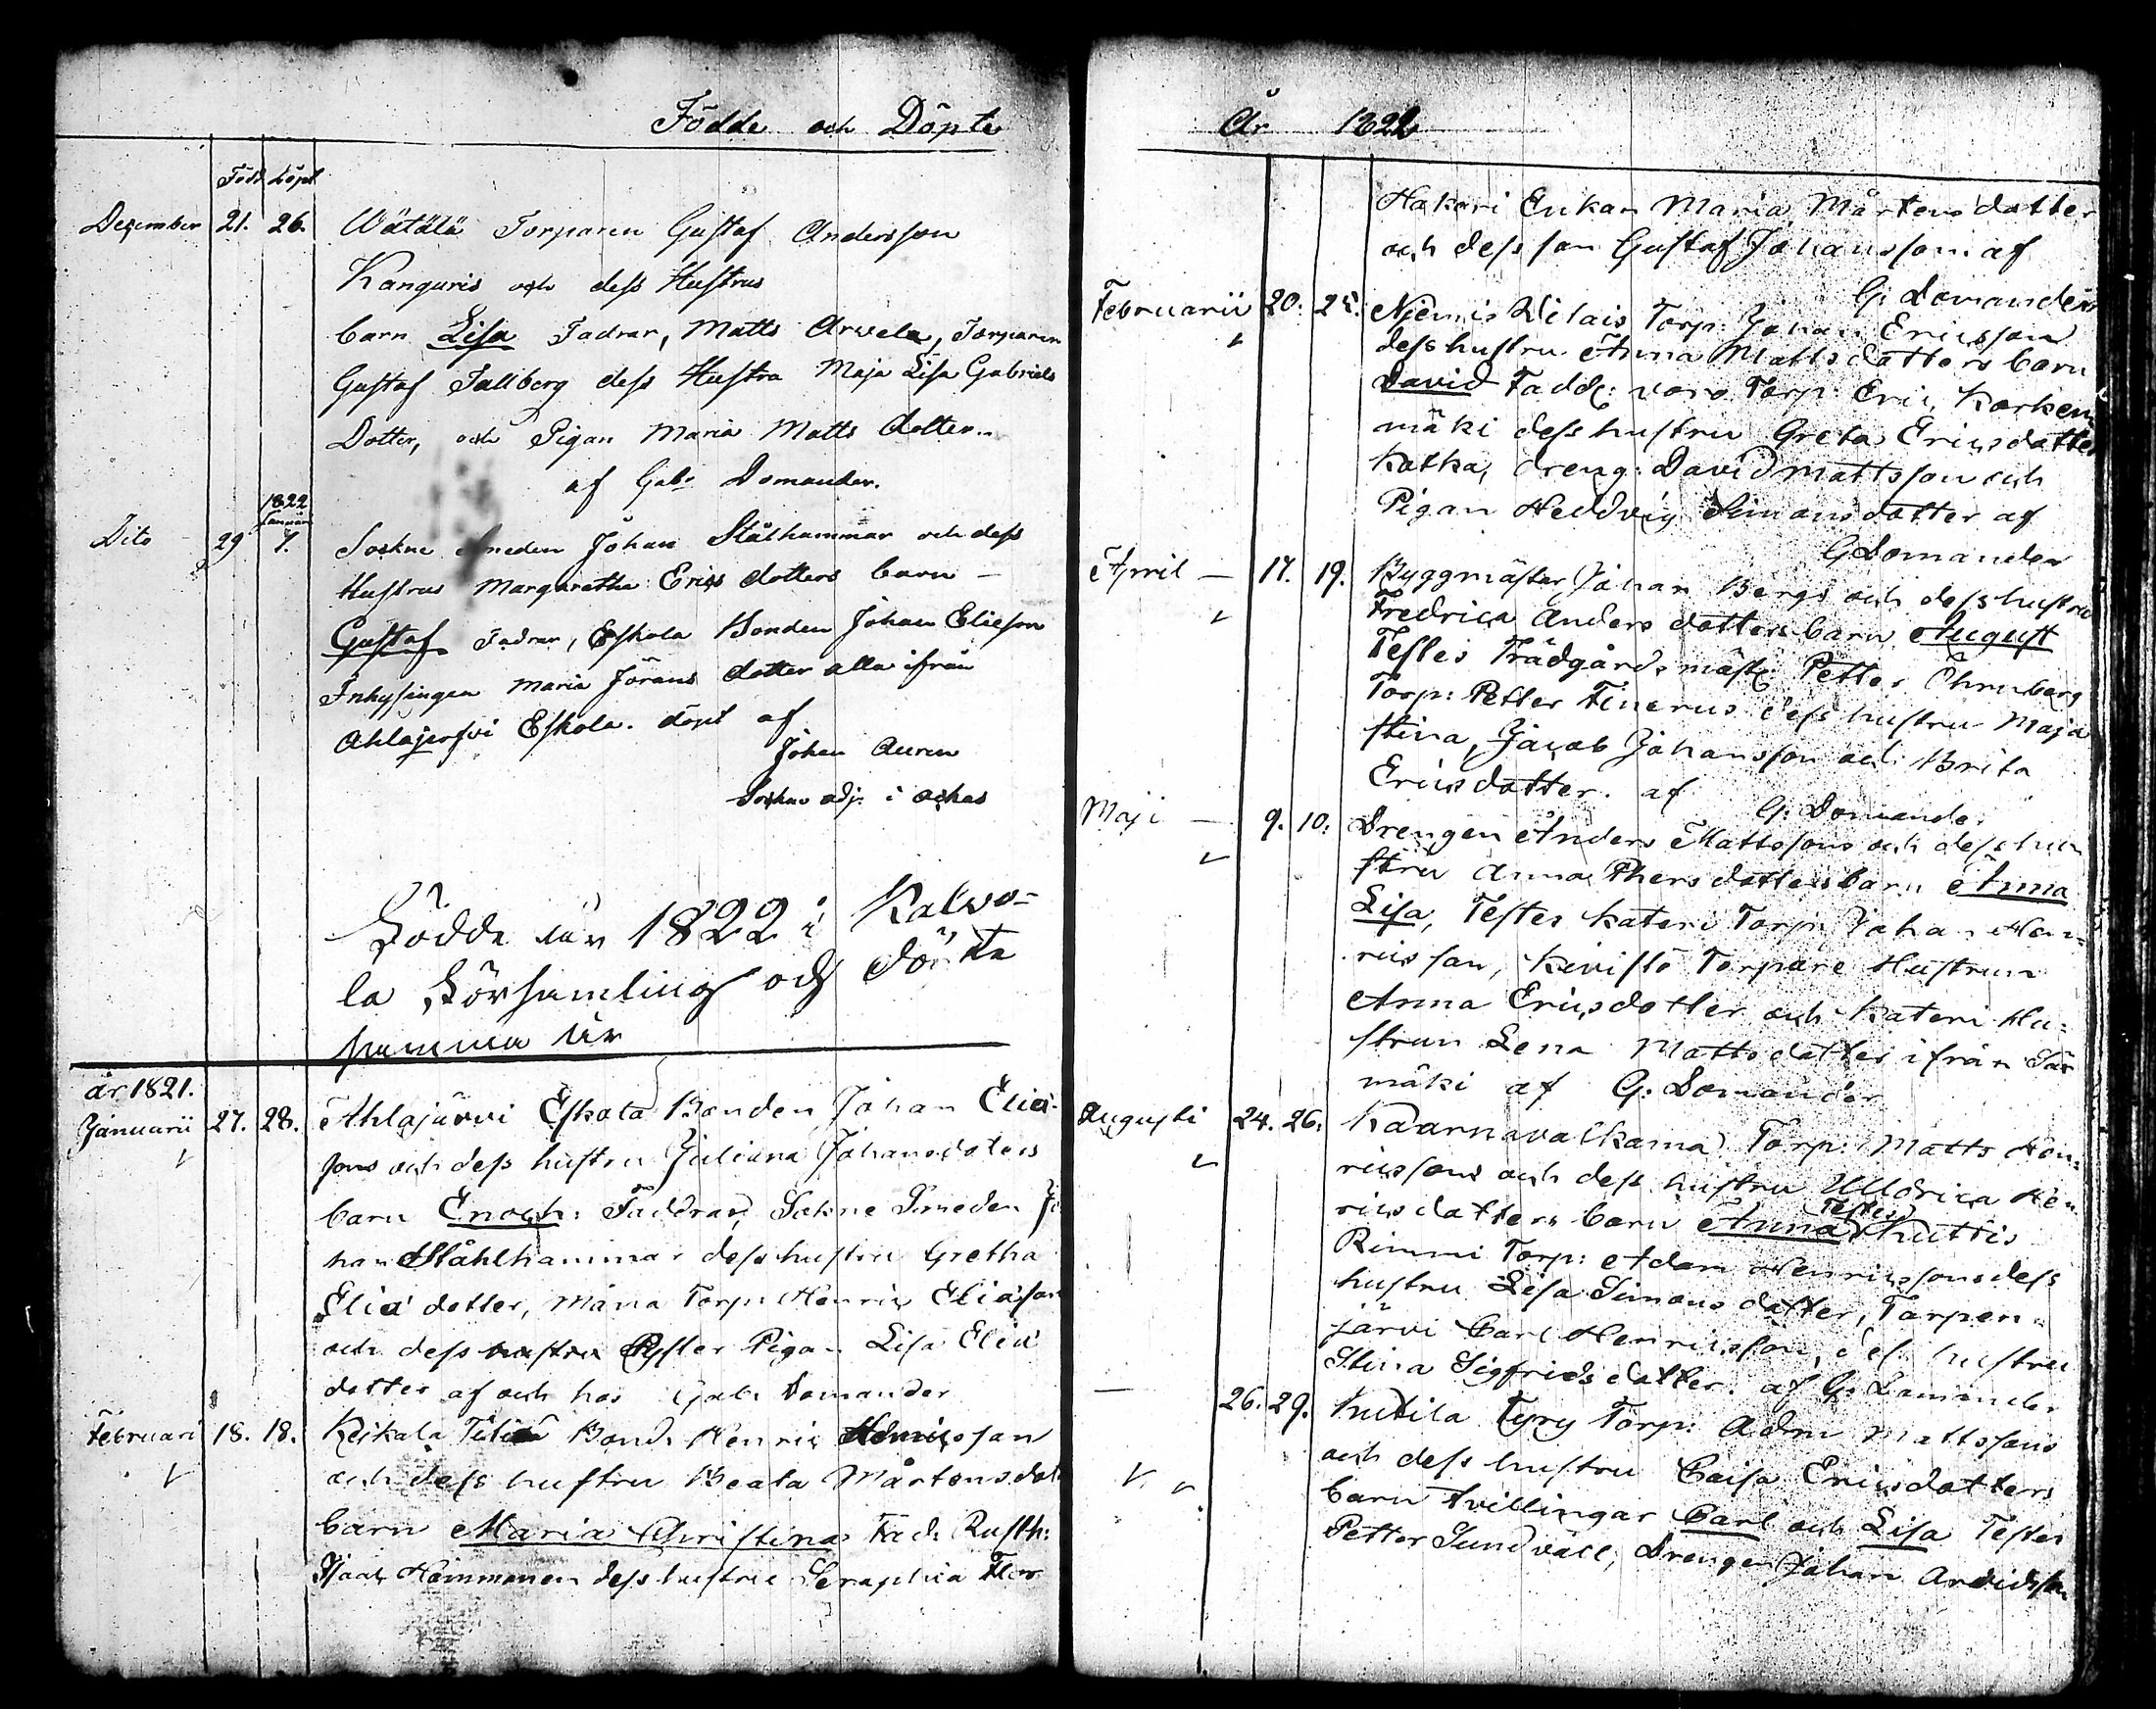 Födde och Döpte
Född Döpt
December 21. 26. Wätälä Torparen Gustaf Andersson
Kanguris och dess Hustrus
barn Lisa Fadrar, Matts Arvela, Torparen
Gustaf Tallberg dess Hustru Maja Lisa Gabriels
Dotter, och Pigan Maria Matts dotter
af Gabr Domander.
1822
Januari
Dito 29 7. Sockne Smeden Johan Stålhammar och dess
Hustrus Margaretha Erics dotters barn –
Gustaf Fadrar, Eskola Bonden Johan Elieson
Inhysingen Maria Jörans dotter alla ifrån
Ahlajerfvi Eskola. döpt af
Johan Auren
Sockne adj. i
Födde år 1822 i Kalvo-
la Församling och döpte
samma år
år 1821.
Januarii 27. 28. Ahlajärvi Eskola Bonden Johan Elia-
sons och dess hustru Juliana Johansdoters
barn Enoch: Faddrar, Sokne Smeden Jo
han Ståhlhammar dess hustru Gretha
Elia dotter, Torp: Henric Eliason
och dess hustru Pigan Lisa Elia
dotter af och hos Gab: Domander
Februari 18. 18. Keikala Bond: Henric Henricsson
och dess hustru Beata Mårtensdot
barn Maria Christina Fad: Rusth:
Isaac Heimmonen dess hustru Seraphia Flor
År 1822
Hakari Enkan Maria Mårtens dotter
och dess son Gustaf Johansson af
G: Domander
Februarii 20. 25. Njemis Torp: Johan Ericsson
dess hustru Anna Mattsdotters barn
David Fadd: voro Torp: Eric Korken
mäki dess hustru Greta Ericsdotter
Katka, dreng: David Mattsson och
Pigan Heddvig Simonsdotter af
G Domander
April – 17. 19. Byggmäster Johan Bergs och dess hustru
Fredrica Anders dotters barn August
Testes Trädgårdsmäst: Petter Öhrnberg
Torp: Petter Finerus dess hustru Maja
Stina, Jacob Johansson och Brita
Ericsdotter. af G: Domander
Maji – 9. 10. Drengen Anders Mattssons och dess hu
stru Anna Phersdotters barn Anna
Lisa, Testes Kateri Torp: Johan Hen=
ricsson, Kivistö Torpare Hustrun
Anna Ericsdotter och Kateri Hu=
strun Lena Mattsdotter ifrån Sär
mäki af G: Domander
Augusti 24. 26. Kaarnava (kama) Torp: Matts Hen=
ricssons och dess hustru Ulldrica Hen
ricsdotters barn Anna Testes Kuttis
Rimmi Torp: Adam Henricssons dess
hustru Lisa Simons dotter, Tarpen=
järvi Carl Henricsson, des hustru
Stina Sigfrids dotter. af G: Domander
– 26. 29. Kutila Tyry Torp: Adm Mattssons
och dess hustru Caisa Ericsdotters
barn tvillingar Carl och Lisa Testes
Petter Sundvall, Drengen Johan Arvidsson